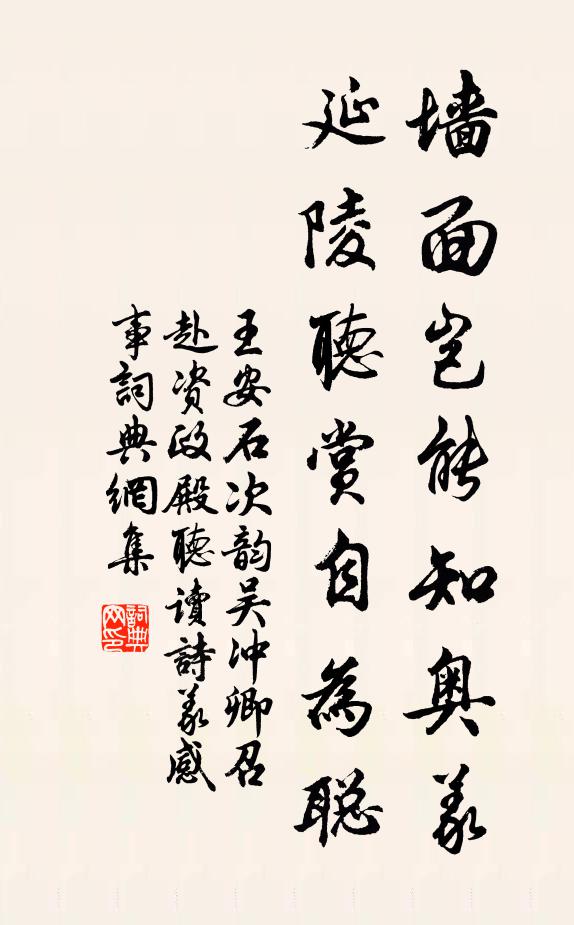 墙面岂能知奥義
延陵聽赏自為聪
王安石次韵吴冲卿召
赴资政殿聽读詩義感
事詞典網集
詞典
网印